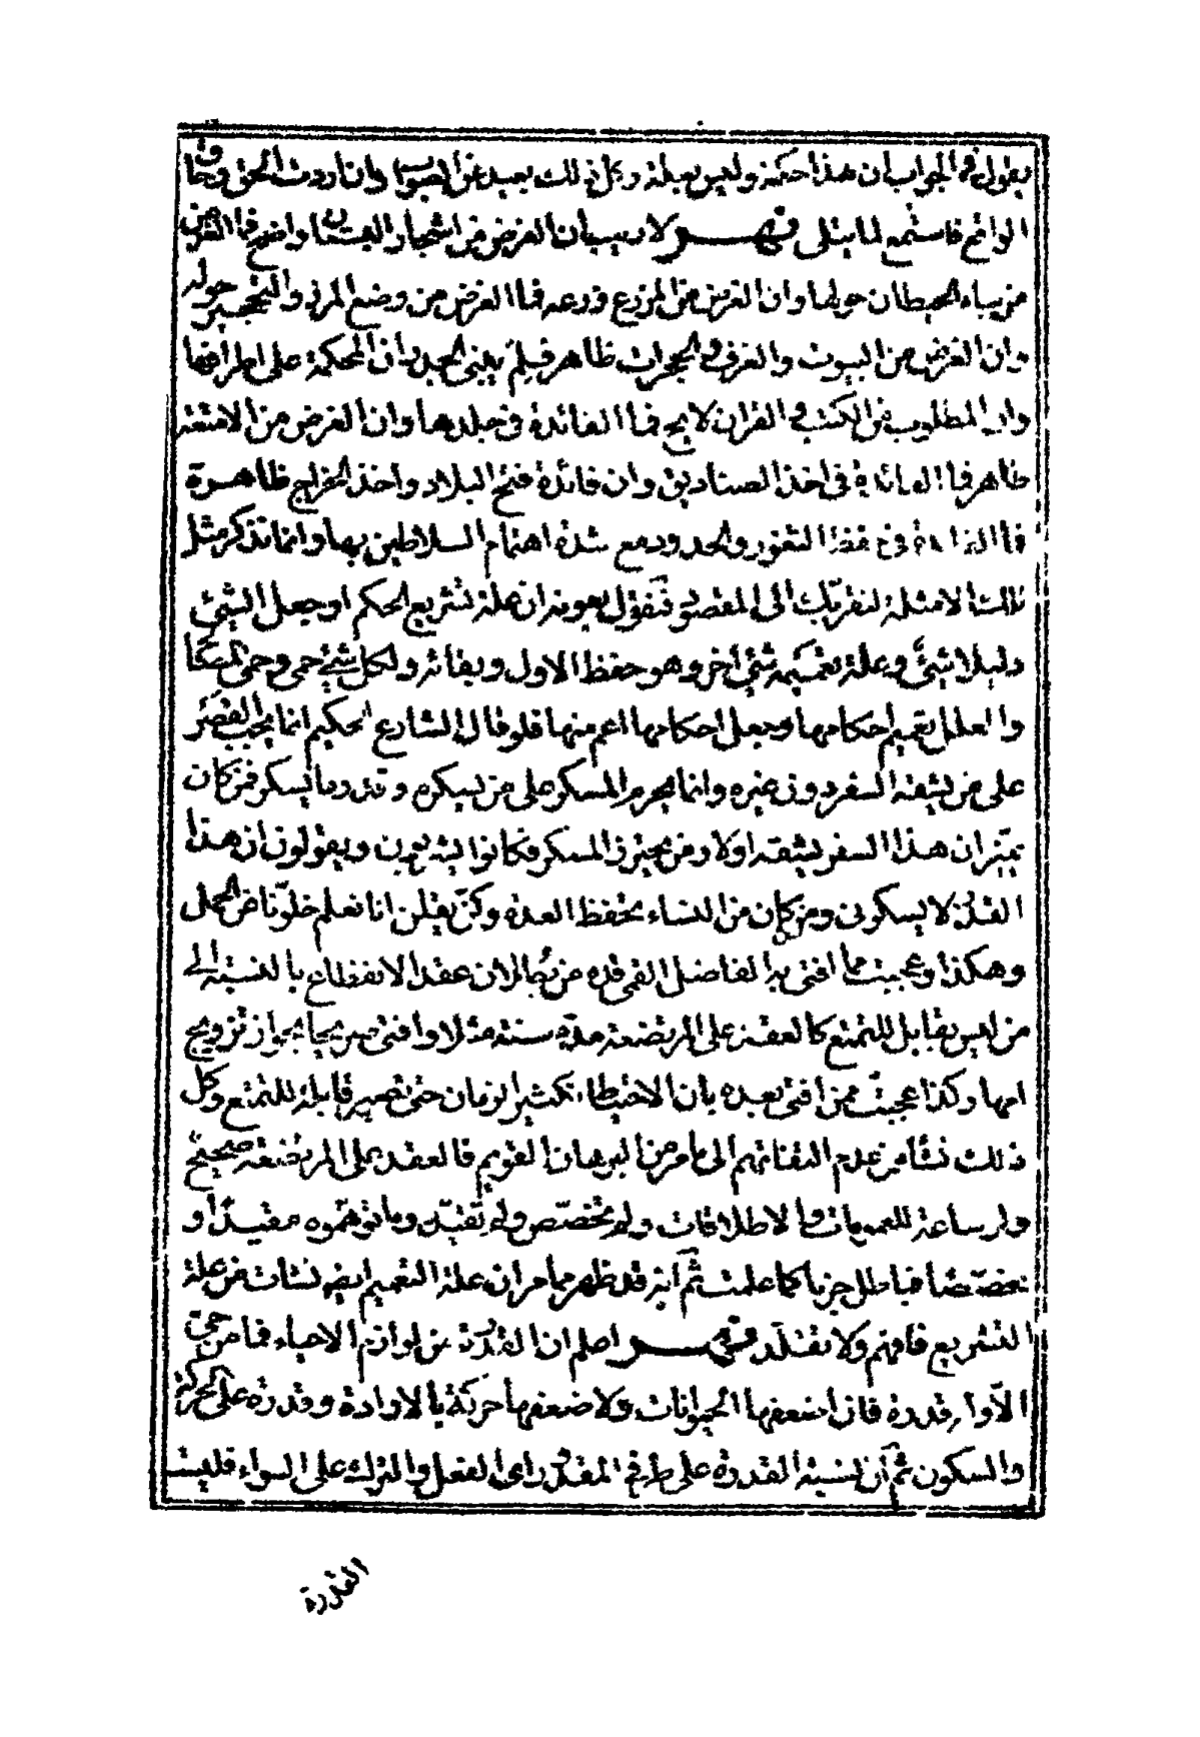 يقولى فى الجواب ان هذا حكمة وليس بعلة وكل ذلك بعيد عن الصواب وان اردت الحق وحاق
الواقع فاستمع لما يتلى قهـــر لا ريب ان الغرض من اشجار البستان واضح فما الغرض
من بناء الحيطان حولها وان الغرض من المزرع زرعه فما الغرض من وضع المرز والتحجير حوله
وان الغرض من البيوت والغرف والحجرات ظاهر فلم يبنى الجدران المحكمة على اطرافها
وان المطلوب من الكتب والقران لايح فما الفائدة فى جلدها وان الغرض من الامتعة
ظاهر فما الفائدة فى اخذ الصناديق وان فائدة فتح البلاد واخذ الخراج ظاهرة
فما الفائدة فى حفظ الثغور والحدود مع شدة اهتمام السلاطين بها وانما نذكر مثل
تلك الامثلة لنقربك الى المقصود فنقول بعونه ان علة تشريع الحكم او جعل الشئ
دليلا شئ وعلة تعميمه شئ أخر وهو حفظ الاول وبقائه ولكل شئ حمى وحمى
والعلل تعميم احكامها وجعل احكامها اعم منها فلو قال الشارع الحكيم انما يجب القصر
على من يشقه السفر دون غيره وانما يحرم المسكر على من يسكره وقدر ما يسكر فمن كان
يميز ان هذا السفر يشقه اولا ومن يجتزى المسكر فكانوا يشربون ويقولون ان هذا
القدر لا يسكرنى ومن كان من النساء تحفظ العدة وكن يقلن انا نعلم خلونا من الحمل
وهكذا وعجبت مما افتى به الفاضل القمى قده من بطلان عقد الانقطاع بالنسبة الى
من ليس بقابل للتمتع كالعقد على المرتضعة مدة سنة مثلا وافتى صريحا بجواز تزويج
امها وكذا عجبت ممن افتى بعده بان الاحتياط تكثير الزمان حتى تصير قابلة للتمتع وكل
ذلك نشأ من عدم التفاتهم الى ما مر من البرهان القويم فالعقد على المرتضعة صحيح
ولو ساعة للعمومات والاطلاقات ولم تخصص ولم تقيد وما توهموه مقيدا او
مخصصا فباطل جزما كما علمت ثم انه قد ظهر مما مر ان علة التعميم ايضا نشات من علة
التشريع فافهم ولا تقلد قهـــر اعلم ان القدرة من لوازم الاحياء فما من حى
الا وله قدرة فان اضعفها الحيوانات ولاضعفها حركة بالارادة وقدرة على الحركة
والسكون ثم ان نسبة القدرة على طرفى المقدور اى الفعل والترك على السواء فليست
القدرة